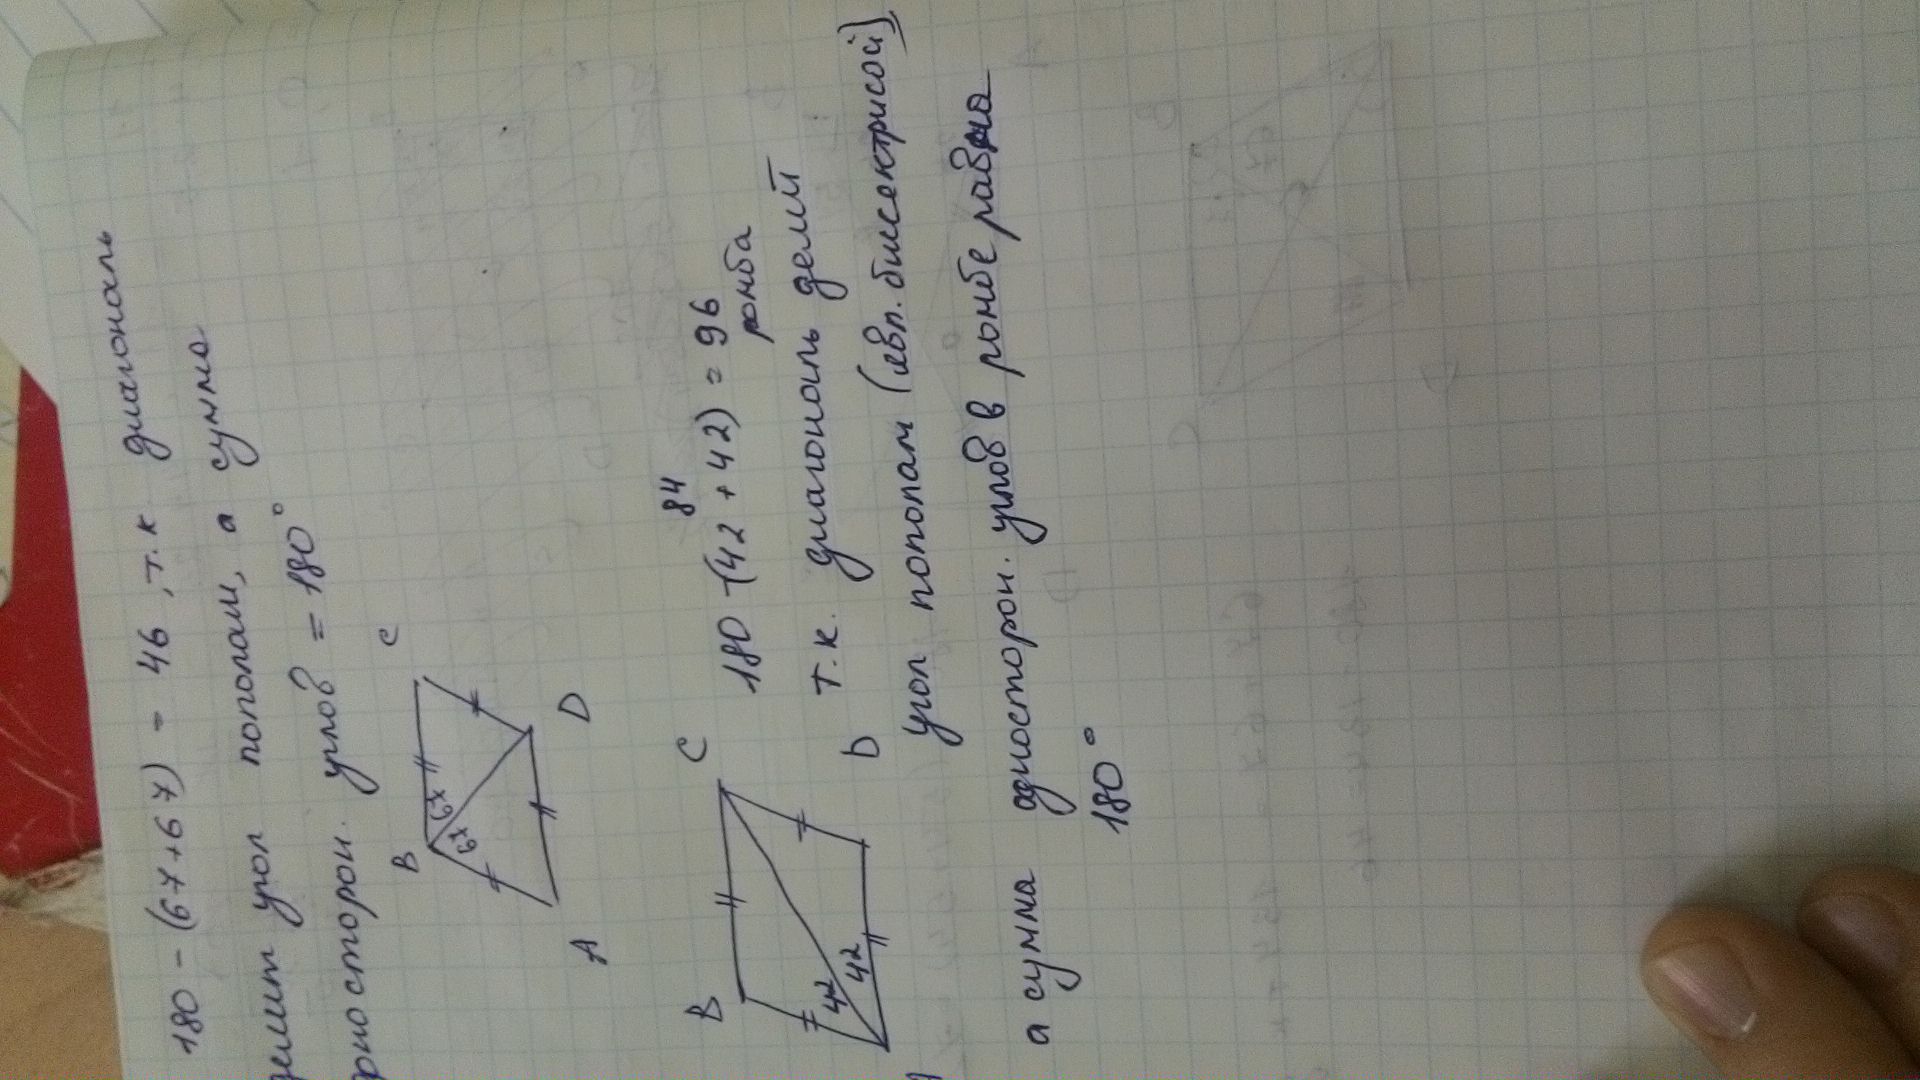 180 - (67+67) = 46, т.к диагональ
делит угол пополам, а сумма
односторон. углов = 180°
B
C
67
67
A
D
B
C
42
42
D
84
180 - (42 + 42) = 96
ромба
т.к. диагональ делит
угол пополам (явл. биссектрисой)
а сумма односторон. углов в ромбе равна
180°